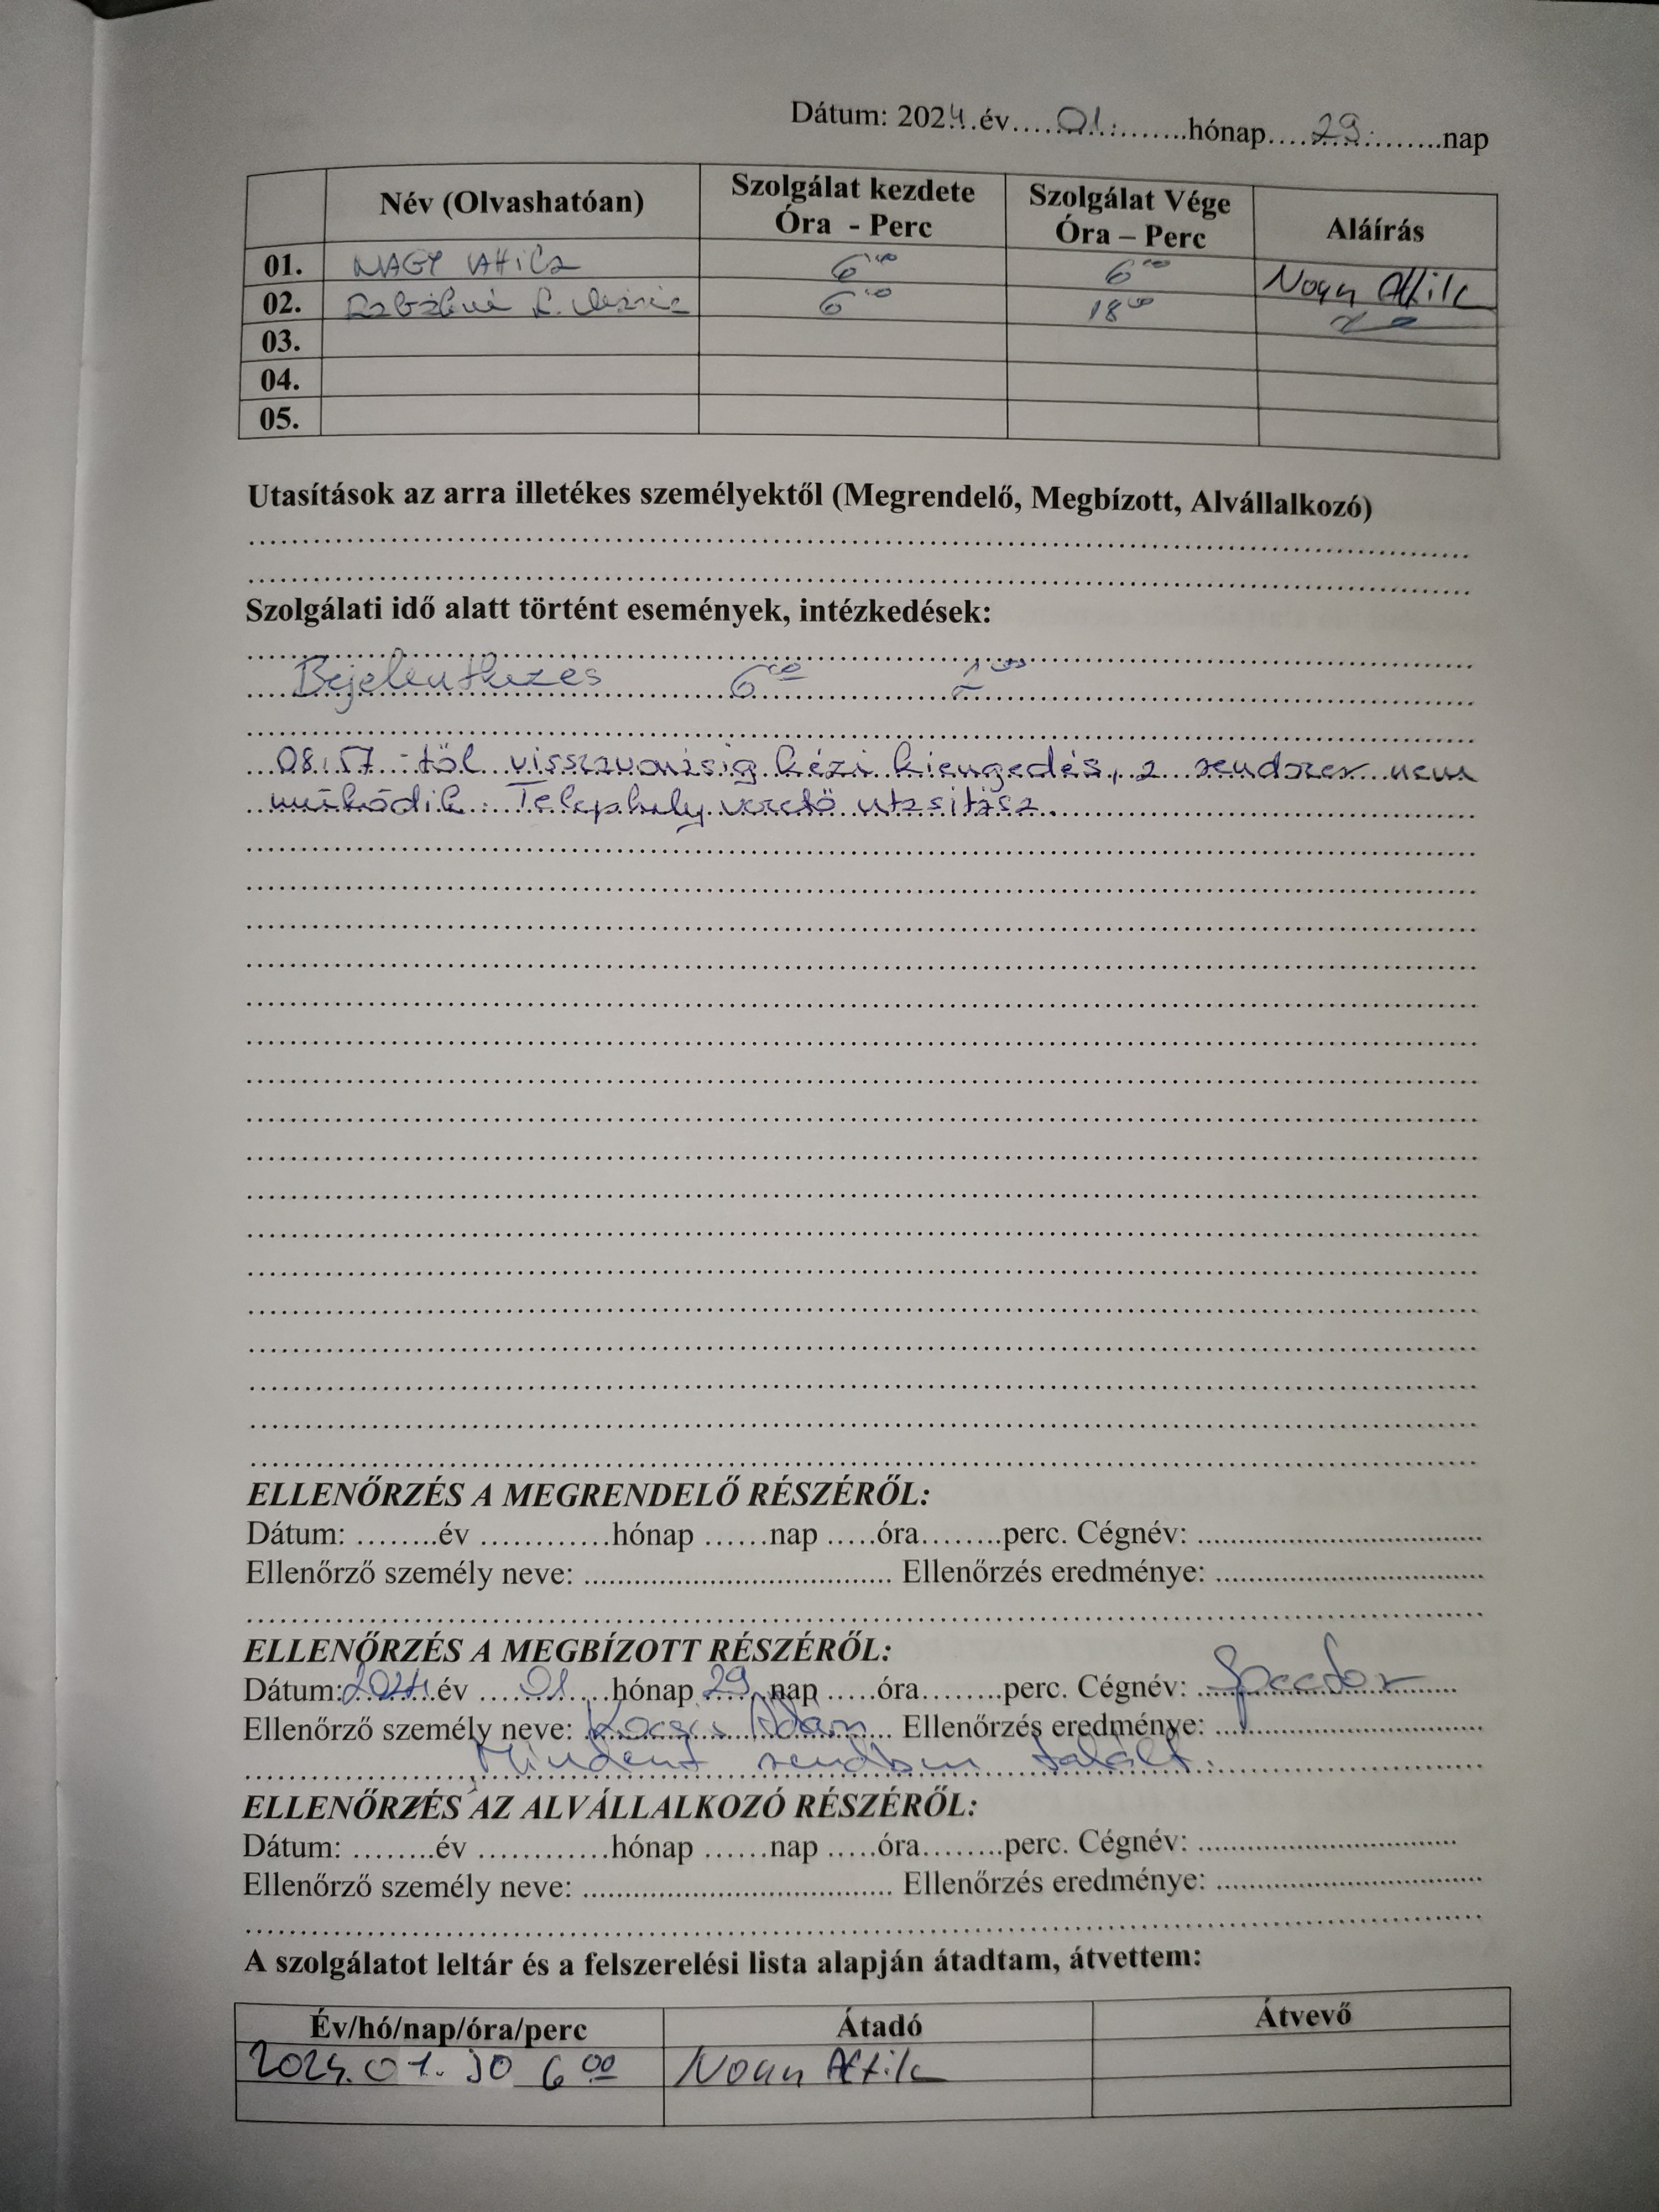 Dátum: 2024. év 01. hónap 29. nap
Név (Olvashatóan) Szolgálat kezdete Óra - Perc Szolgálat Vége Óra – Perc Aláírás
01. NAGY Attila 6⁰⁰ 6⁰⁰ Nagy Attila
02. 6⁰⁰ 18⁰⁰
03.
04.
05.
Utasítások az arra illetékes személyektől (Megrendelő, Megbízott, Alvállalkozó)
Szolgálati idő alatt történt események, intézkedések:
Bejelentkezés 6⁰⁰
08:57-től visszavonásig kézi kiengedés, a rendszer nem
működik. Telephely vezető utasítása.
ELLENŐRZÉS A MEGRENDELŐ RÉSZÉRŐL:
Dátum: ........év ............hónap ......nap .....óra........perc. Cégnév: ..................................
Ellenőrző személy neve: ...................................... Ellenőrzés eredménye: ..................................
ELLENŐRZÉS A MEGBÍZOTT RÉSZÉRŐL:
Dátum: 2024. év 01. hónap 29. nap .....óra........perc. Cégnév:
Ellenőrző személy neve: Kocsis Ádám Ellenőrzés eredménye:
Mindent rendben talált.
ELLENŐRZÉS AZ ALVÁLLALKOZÓ RÉSZÉRŐL:
Dátum: ........év ............hónap ......nap .....óra........perc. Cégnév: ..................................
Ellenőrző személy neve: ...................................... Ellenőrzés eredménye: ..................................
A szolgálatot leltár és a felszerelési lista alapján átadtam, átvettem:
Év/hó/nap/óra/perc Átadó Átvevő
2024. 01. 30 6⁰⁰ Nagy Attila